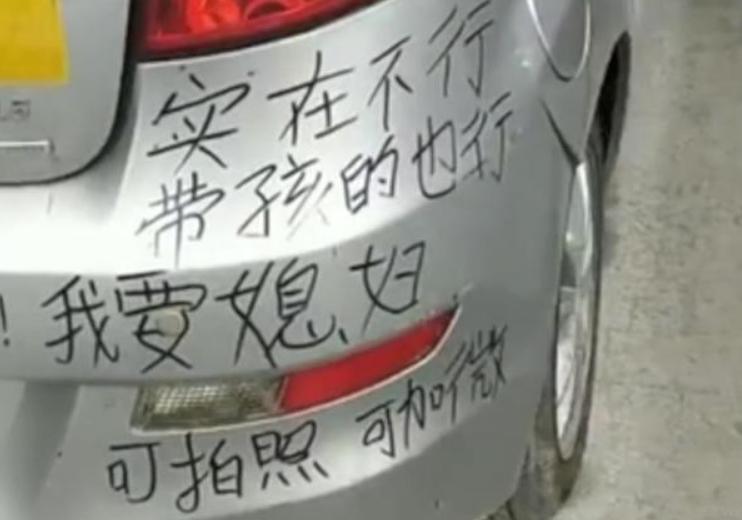 实在不行
带孩的也行
！我要媳妇
可拍照 可加微